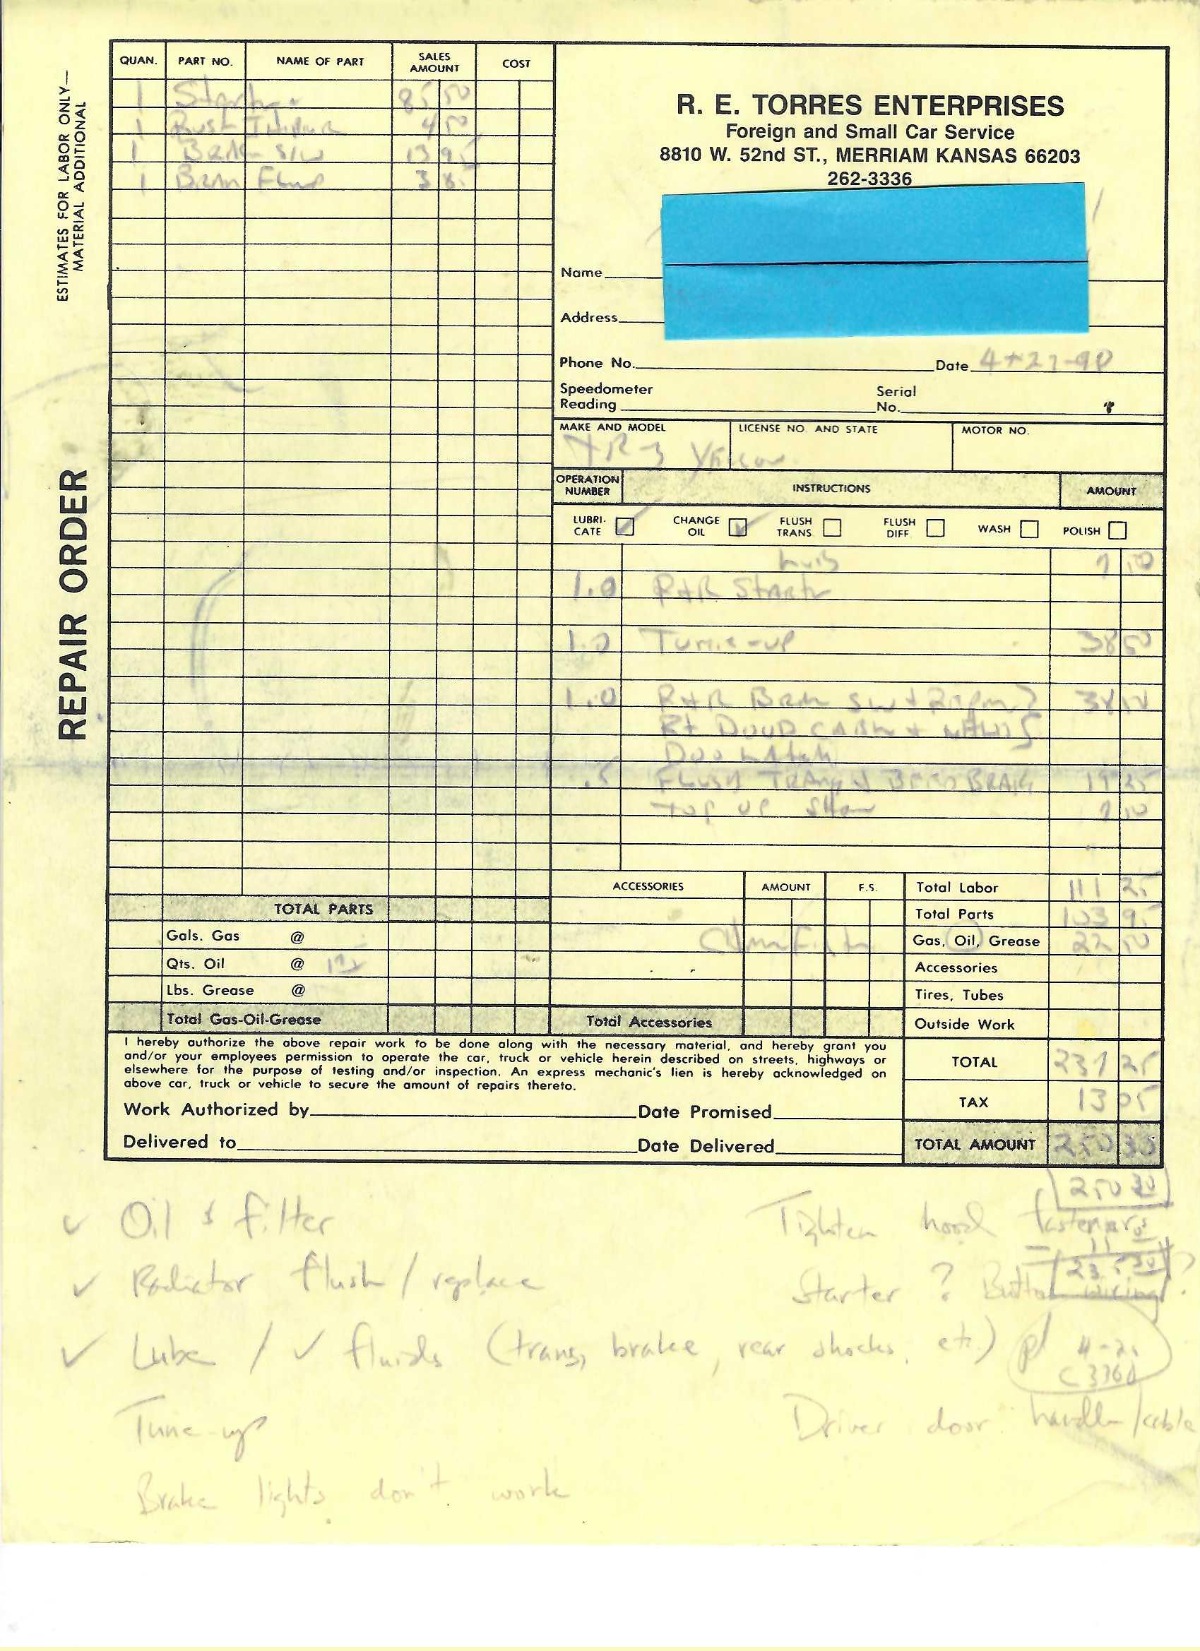 QUAN. PART NO. NAME OF PART SALES AMOUNT COST
1 Starter 85 50
1 4 50
1 Brake S/W 13 95
1 Brake Fluid 3 85
ESTIMATES FOR LABOR ONLY—
MATERIAL ADDITIONAL
REPAIR ORDER
R. E. TORRES ENTERPRISES
Foreign and Small Car Service
8810 W. 52nd ST., MERRIAM KANSAS 66203
262-3336
Name
Address
Phone No. Date
Speedometer Reading Serial No.
MAKE AND MODEL LICENSE NO. AND STATE MOTOR NO.
TR-3 Yellow
OPERATION NUMBER INSTRUCTIONS AMOUNT
LUBRI-CATE CHANGE OIL FLUSH TRANS FLUSH DIFF WASH POLISH
Lub
1.0 R+R Starter
1.0 Tune-up 38 50
1.0 R+R
.5 Flush 19 25
top up
ACCESSORIES AMOUNT F.S.
Total Labor 111 25
TOTAL PARTS
Total Parts 103 95
Gals. Gas @
Gas, Oil, Grease 22 50
Qts. Oil @
Accessories
Lbs. Grease @
Tires, Tubes
Total Gas-Oil-Grease Total Accessories
Outside Work
I hereby authorize the above repair work to be done along with the necessary material, and hereby grant you
and/or your employees permission to operate the car, truck or vehicle herein described on streets, highways or
elsewhere for the purpose of testing and/or inspection. An express mechanic's lien is hereby acknowledged on
above car, truck or vehicle to secure the amount of repairs thereto.
TOTAL 237 25
TAX 13 05
Work Authorized by Date Promised
Delivered to Date Delivered
TOTAL AMOUNT 250 30
250 30
✓ Oil & filter Tighten hood fasteners
✓ Radiator flush / replace Starter ? Button wiring?
✓ Lube / ✓ fluids (trans, brake, rear shocks, etc)
Tune-up Driver door handle/cable
Brake lights don't work